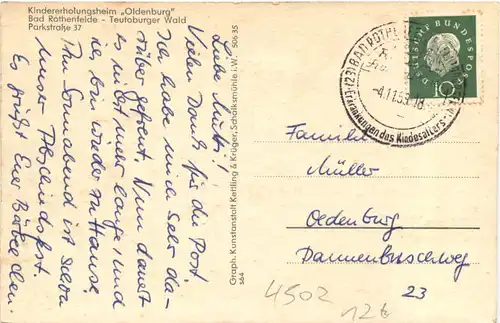 Kindererholungsheim „Oldenburg"
Bad Rothenfelde - Teutoburger Wald
Parkstraße 37
Liebe Mutti!
Vielen Dank für die Post
Ich habe mich sehr da-
rüber gefreut. Nun dauert
es nicht mehr lange, und
ich bin wieder zu Hause
Am Sonnabend ist schon
unser Abschiedsfest.
Es grüßt Euer Bärbelchen.
Graph. Kunstanstalt Kettling & Krüger, Schalksmühle i. W. 506 35
s64
(23) BAD ROTHENFELDE
-4.11.59.-18
Erkrankungen des Kindesalters
DEUTSCHE BUNDESPOST
10
Familie
Müller
Oldenburg
Dannenbuschweg
23
4502
12